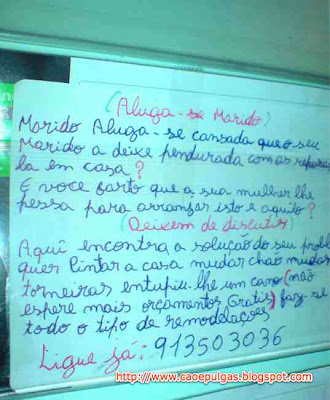 (Aluga-se Marido)
Marido Aluga-se cansada que o seu
Marido a deixe pendurada com as repara
la em casa?
E voce farto que a sua mulher lhe
pessa para arranjar isto e aquilo?
(Deixem de discutir)
Aqui encontra a solução do seu probl
quer Pintar a casa mudar chão mudar
torneiras entupiu-lhe um cano (não
espere mais orçamentos Gratis) faz-se
todo o tipo de remodelações
Ligue já: 913503036
http://www.caoepulgas.blogspot.com